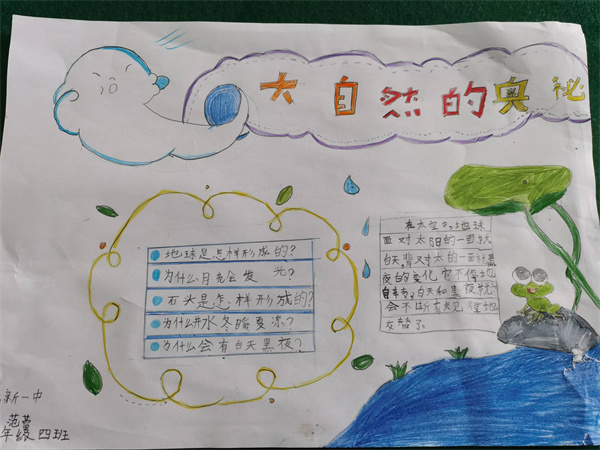 大自然的奥秘
地球是怎样形成的?
为什么月亮会发光?
石头是怎样形成的?
为什么井水冬暖夏凉?
为什么会有白天黑夜?
在太空中,地球
面对太阳的一面就
白天,背对太的一面就黑
夜的变化,它不停地
自转,白天和黑夜就
会不断
地
交替了。
新一中
范蔓
年级四班